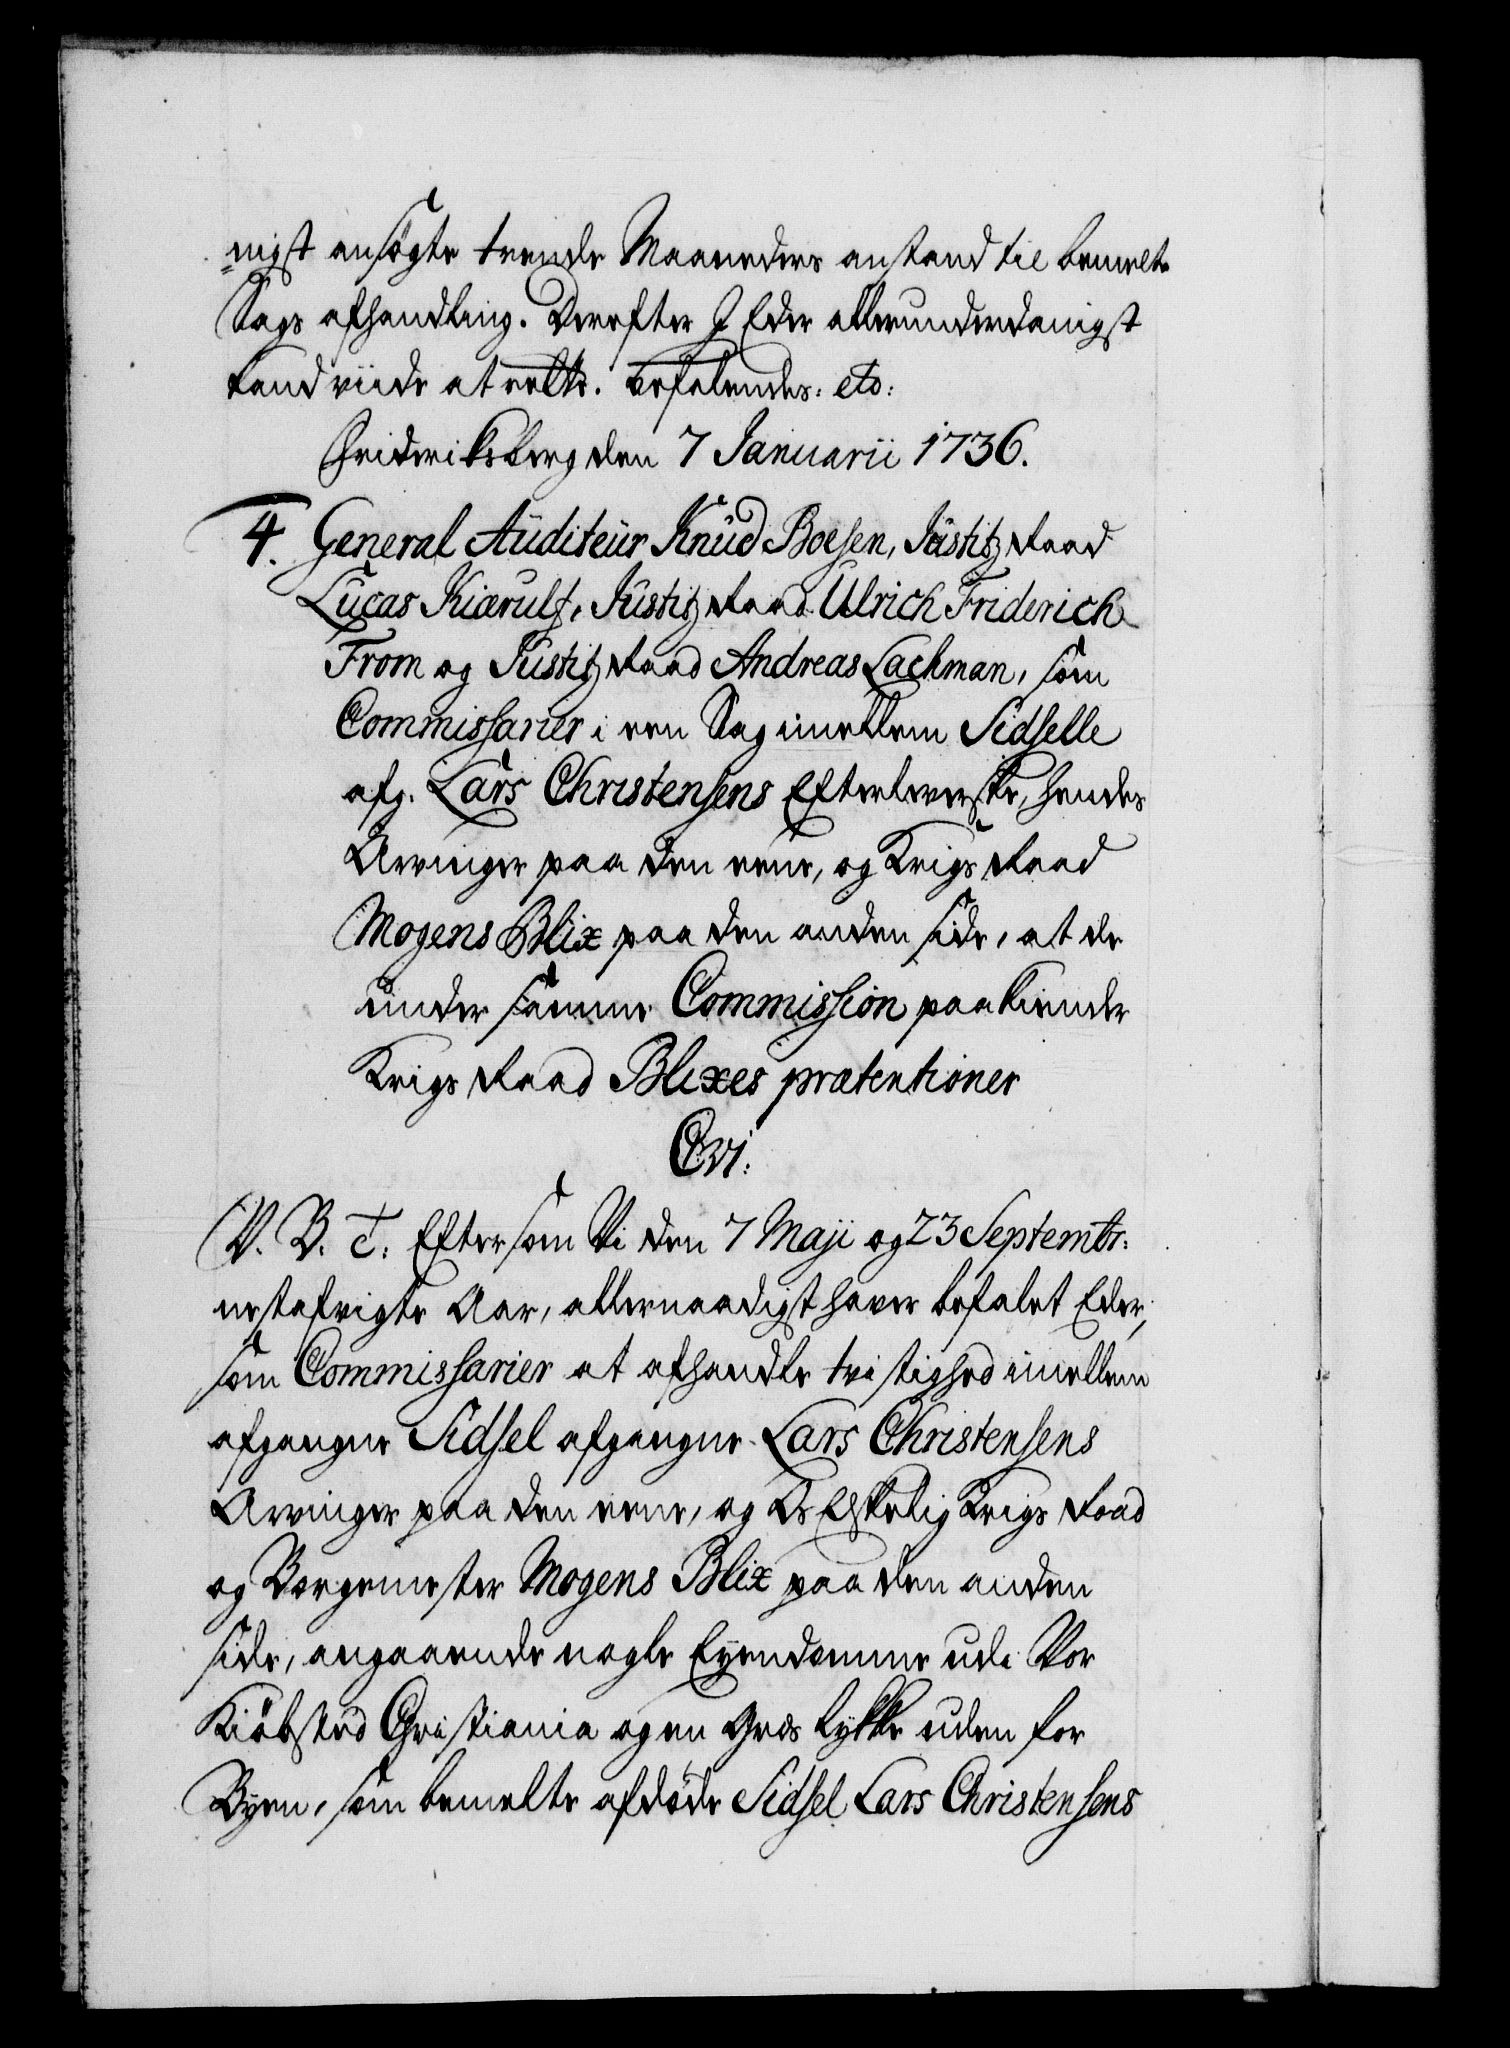 nigst ansøgte trende Maaneders anstand til bemelte
Sags afhandling. Derefter J Eder allerunderdanigst
kand viide at rette. Befalendes: etc:
Friderichsberg den 7 Januarii 1736.
4. General Auditeur Knud Boesen, Justitz Raad
Lucas Kiærulf, Justitz Raad Ulrich Friderich
From og Justitz Raad Andreas Lachman, som
Commissarier i een Sag imellem Sidselle
afg. Lars Christensens Efterleverske, hendes
Arvinger paa den eene, og Krigs Raad
Mogens Blix paa den anden side, at de
under samme Commission paakiender
Krigs Raad Blixes prætentioner
C VI.
V. B. T: Eftersom Vi den 7 Maji og 23 Septembr:
nestafvigte Aar, allernaadigst haver befalet Eder,
som Commissarier at afhandle tvistighed imellem
afgangne Sidsel afgangne Lars Christensens
Arvinger paa den eene, og Os Elskelig Krigs Raad
og Borgemester Mogens Blix paa den anden
side, angaaende nogle Eyendomme udi Vor
Kiøbsted Christiania og en Græs løkke uden for
Byen, som bemelte afdøde Sidsel Lars Christensens